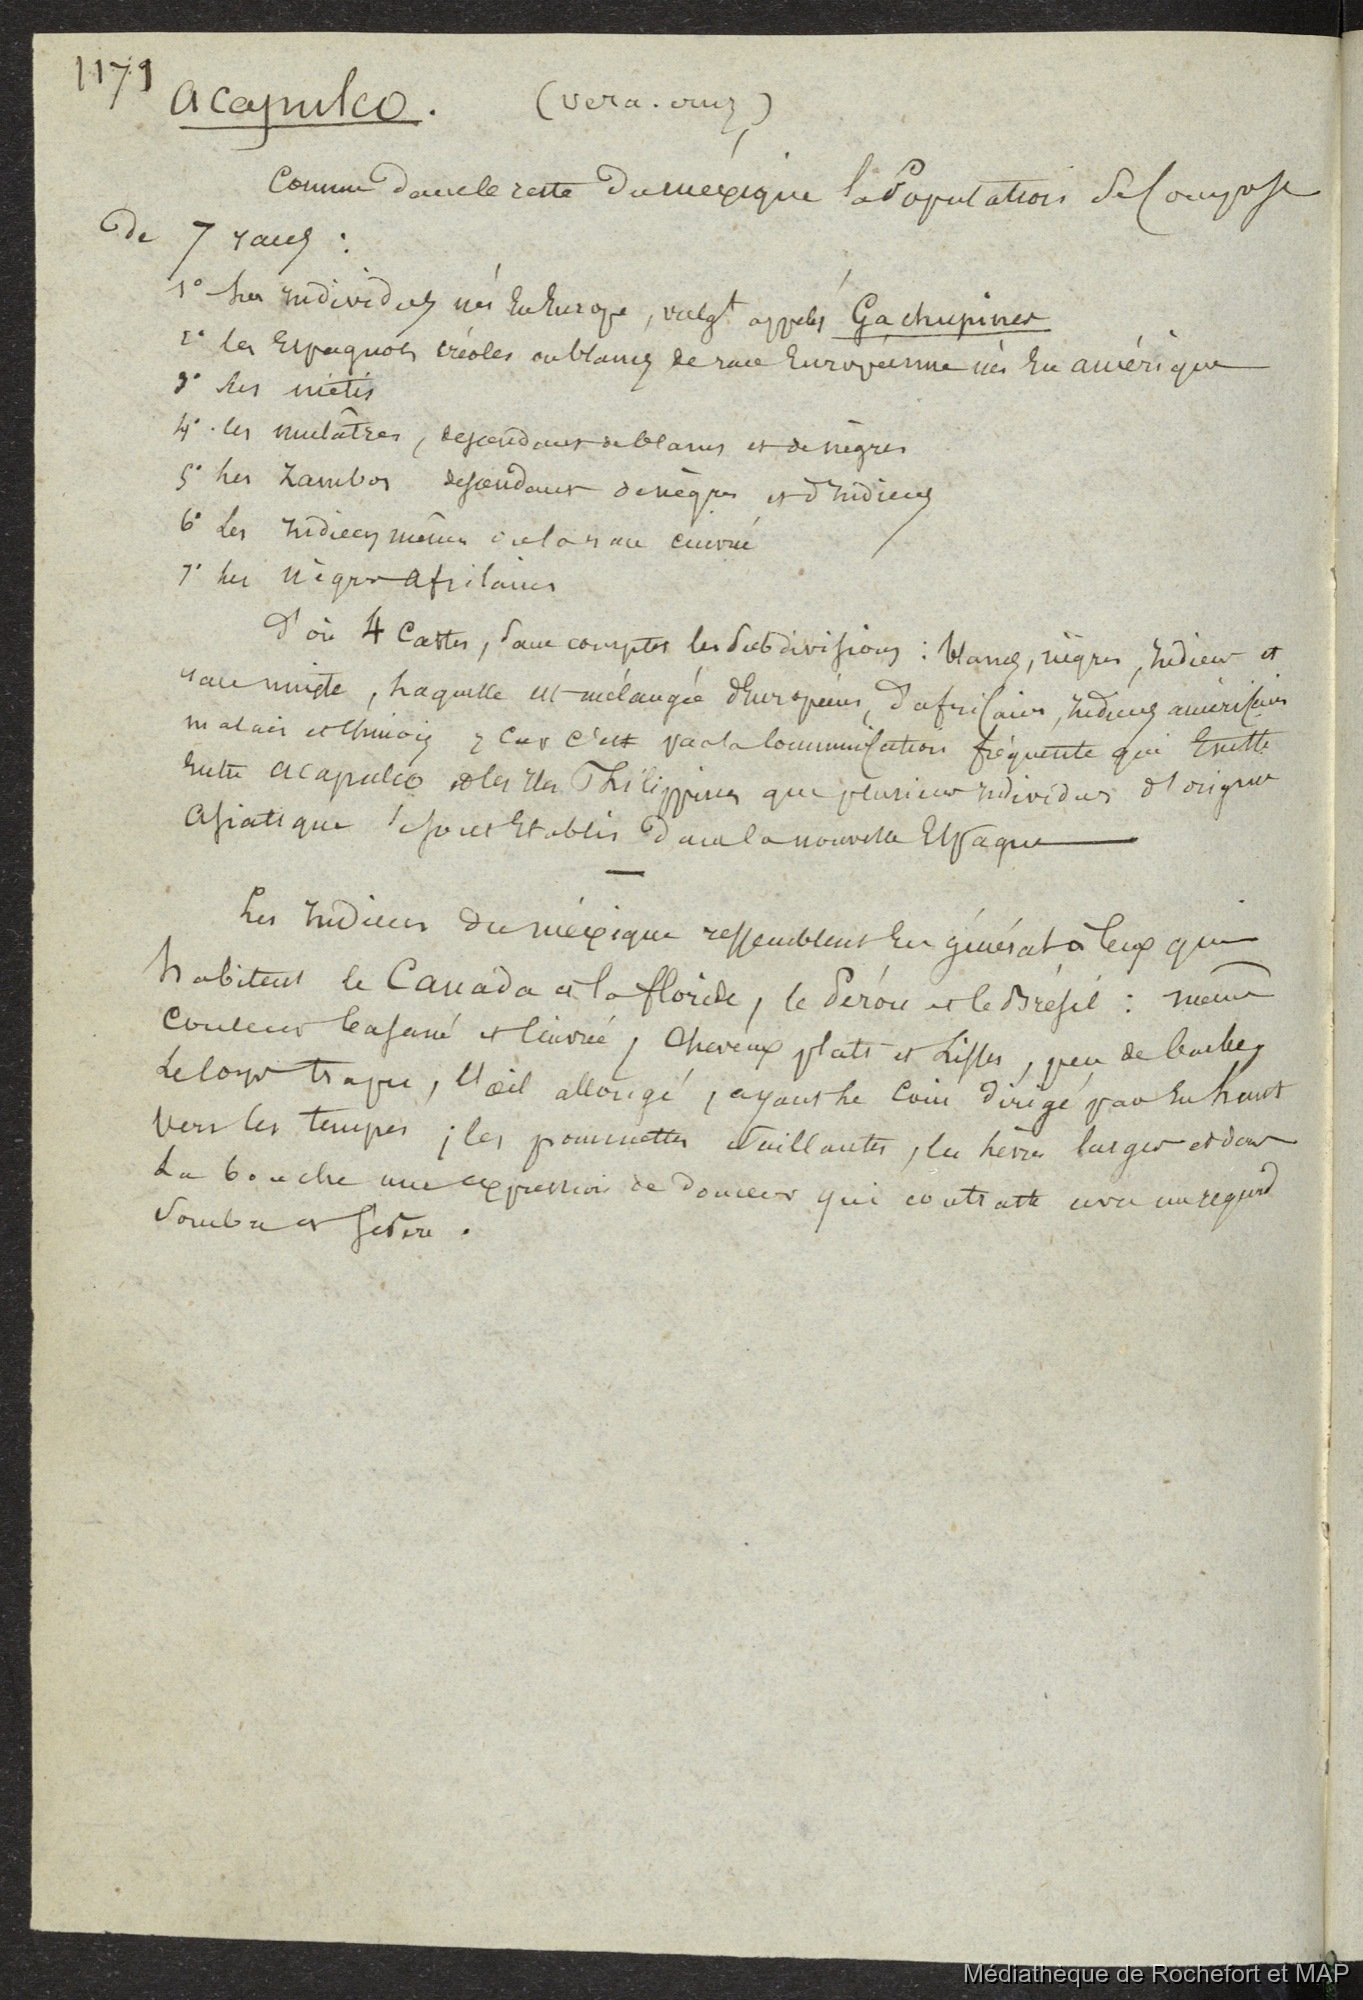 1179
Acapulco. (vera. cruz)
Comme dans le reste du mexique la Population se Compose
de 7 races :
1° les individus nés En Europe, vulgt appelés Gachupines
2° les Espagnols créoles ou blancs de race Européenne nés En amérique
3° les métis
4° les mulâtres, descendant de blancs et de nègres
5° les Zambos descendant de nègres et d'indiens
6° Les indiens mêmes ou la race cuivrée
7° les nègres Africains
D'où 4 Castes, sans compter les Subdivisions : blancs, nègres, indiens et
race mixte, laquelle est mélangée d'Européens, d'africains, indiens américains
malais et chinois ; Car c'est par la Communication fréquente qui Existe
Entre acapulco et les iles Philippines que plusieurs individus d'origine
Asiatique se sont Etablis dans la nouvelle Espagne
Les indiens du méxique ressemblent En général à ceux qui
habitent le Canada et la floride, le Pérou et le Brésil : même
Couleur basané et Cuivrée, Cheveux plats et Lisses, peu de barbe,
Le corps trapu, l'oeil allongé, ayant le Coin dirigé par En haut
Vers les tempes ; les pommettes saillantes, les lèvres larges et dans
La bouche une expression de douceur qui contraste avec un regard
Sombre et Sévère.
Médiathèque de Rochefort et MAP